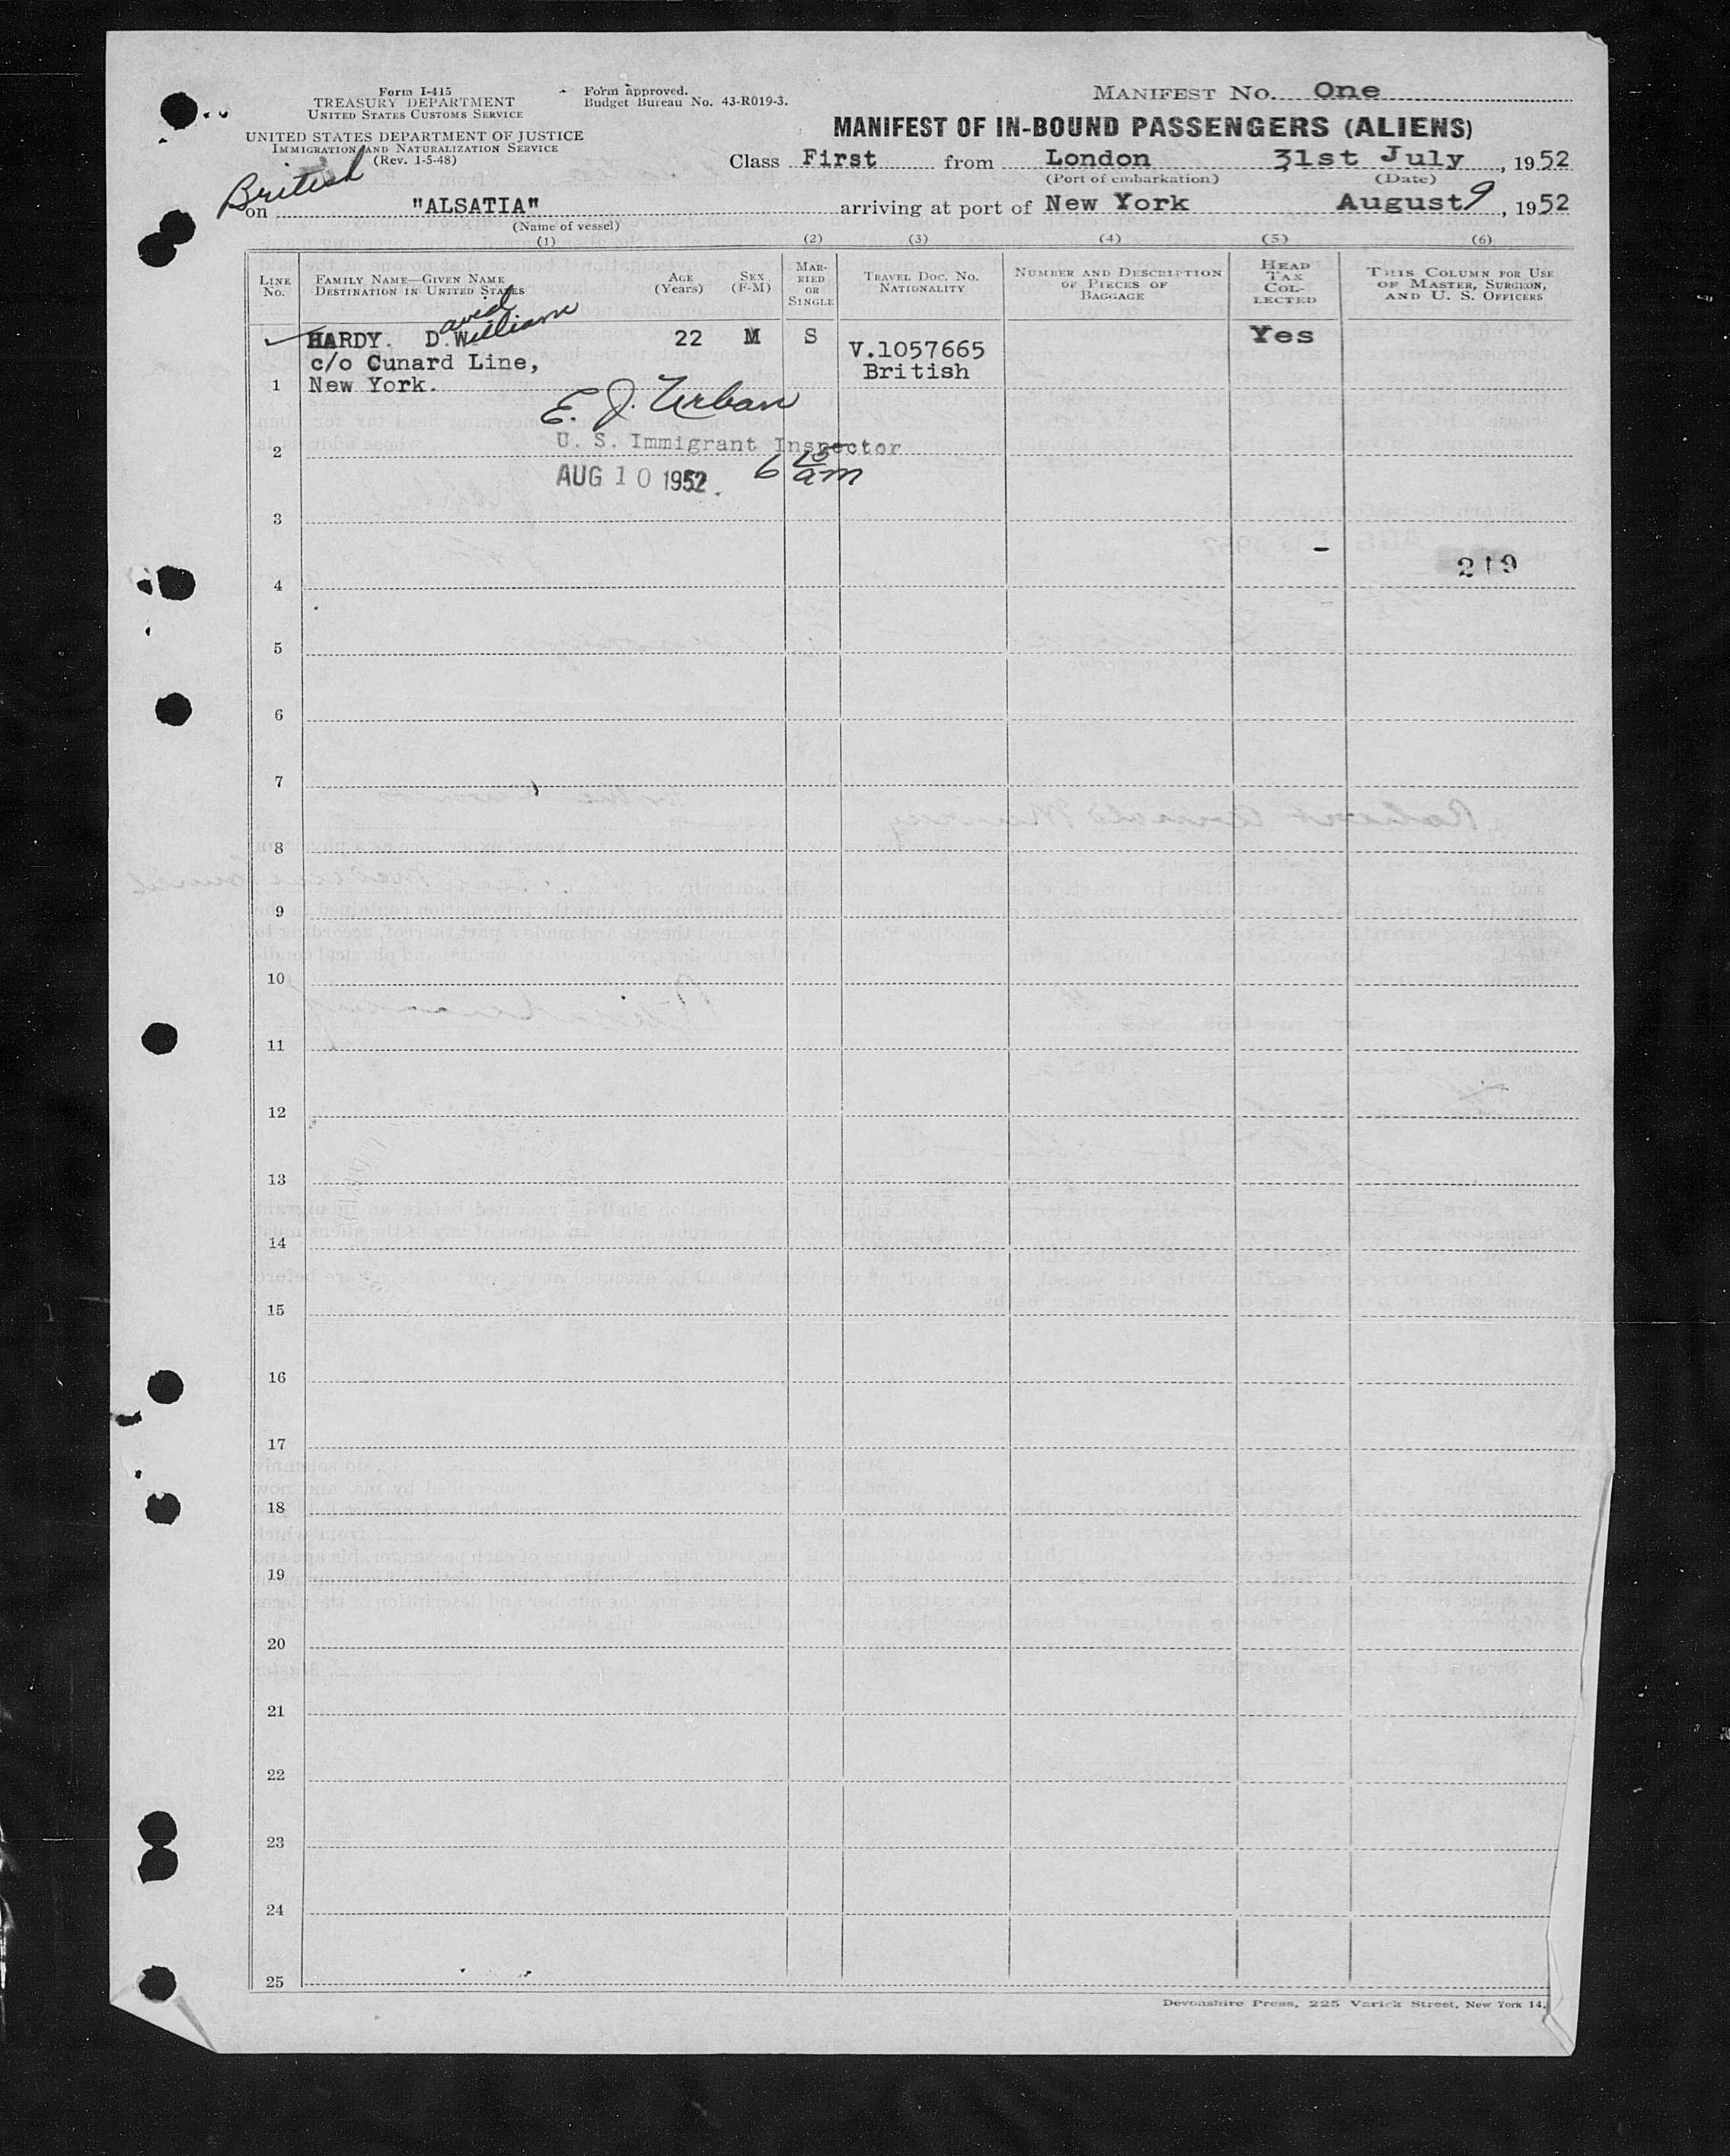 Form I-415
TREASURY DEPARTMENT
UNITED STATES CUSTOMS SERVICE
UNITED STATES DEPARTMENT OF JUSTICE
IMMIGRATION AND NATURALIZATION SERVICE
(Rev. 1-5-48)
Form approved.
Budget Bureau No. 43-R019-3.
MANIFEST NO. One
MANIFEST OF IN-BOUND PASSENGERS (ALIENS)
Class First from London 31st July, 1952
(Port of embarkation) (Date)
British
on "ALSATIA" arriving at port of New York August 9, 1952
(Name of vessel)
(1) (2) (3) (4) (5) (6)
LINE NO.
FAMILY NAME—GIVEN NAME
DESTINATION IN UNITED STATES
AGE (Years)
SEX (F-M)
MARRIED OR SINGLE
TRAVEL DOC. NO.
NATIONALITY
NUMBER AND DESCRIPTION OF PIECES OF BAGGAGE
HEAD TAX COLLECTED
THIS COLUMN FOR USE OF MASTER, SURGEON, AND U. S. OFFICERS
HARDY. David William 22 M S V.1057665 Yes
c/o Cunard Line, British
1 New York.
E. J. Urban
U. S. Immigrant Inspector
2
AUG 10 1952. 6 15 am
3
219
4
5
6
7
8
9
10
11
12
13
14
15
16
17
18
19
20
21
22
23
24
25
Devonshire Press, 225 Varick Street, New York 14,